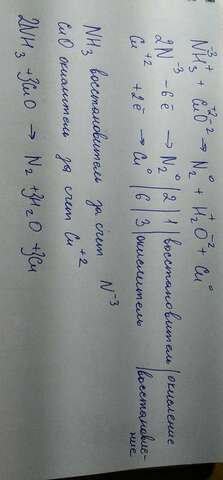 N⁻³H₃⁺ + Cu⁺²O⁻² → N₂⁰ + H₂O⁻² + Cu⁰
2N⁻³ -6ē → N₂⁰ | 2 | 1 | восстановитель | окисление
Cu⁺² +2ē → Cu⁰ | 6 | 3 | окислитель | восстановле-
ние
NH₃ восстановитель за счёт N⁻³
CuO окислитель за счёт Cu⁺²
2NH₃ +3CuO → N₂ +3H₂O +3Cu